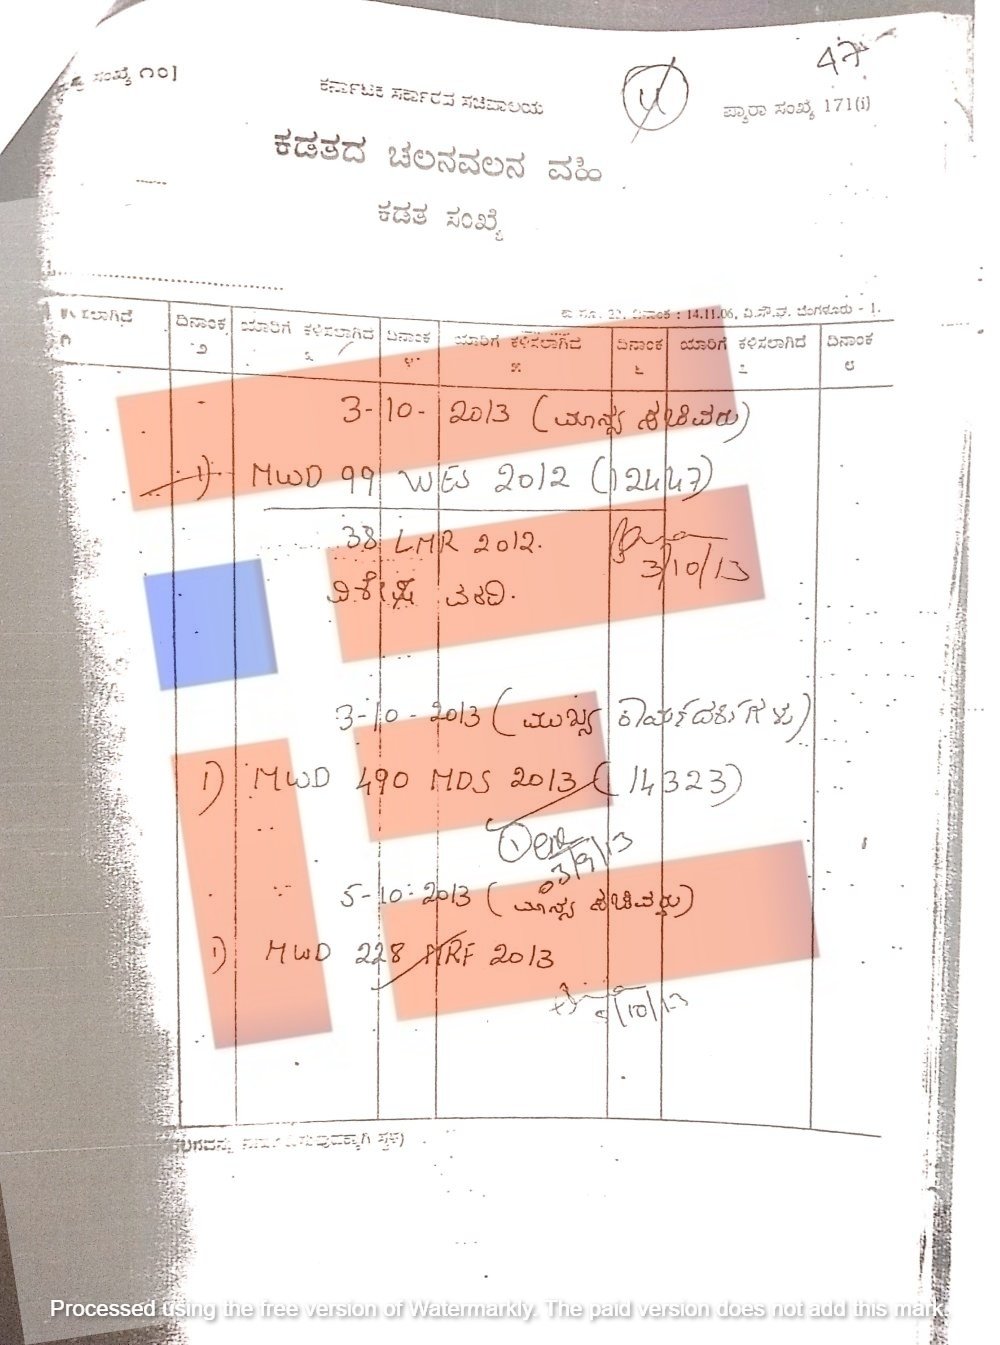 47
ಸಂಖ್ಯೆ ೧೦]
ಕರ್ನಾಟಕ ಸರ್ಕಾರದ ಸಚಿವಾಲಯ
ಪ್ಯಾರಾ ಸಂಖ್ಯೆ 171(i)
ಕಡತದ ಚಲನವಲನ ವಹಿ
ಕಡತ ಸಂಖ್ಯೆ
ದಿನಾಂಕ : 14.11.06, ವಿ.ಸೌ.ಘ. ಬೆಂಗಳೂರು - 1.
ದಿನಾಂಕ ಯಾರಿಗೆ ಕಳಿಸಲಾಗಿದೆ ದಿನಾಂಕ ಯಾರಿಗೆ ಕಳಿಸಲಾಗಿದೆ ದಿನಾಂಕ ಯಾರಿಗೆ ಕಳಿಸಲಾಗಿದೆ ದಿನಾಂಕ
೧ ೨ ೩ ೪ ೫ ೬ ೭ ೮
3-10-2013 (ಮಾನ್ಯ ಸಚಿವರು)
1) MWD 99 WES 2012 (12447)
38 LMR 2012.
ವಿಶೇಷ ವರದಿ.
3/10/13
3-10-2013 (ಮುಖ್ಯ ಕಾರ್ಯದರ್ಶಿಗಳು)
1) MWD 490 MDS 2013 (14323)
03/9/13
5-10-2013 (ಮಾನ್ಯ ಸಚಿವರು)
1) MWD 228 MRF 2013
5/10/13
Processed using the free version of Watermarkly. The paid version does not add this mark.